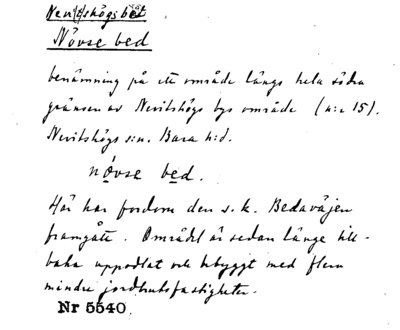 Nevitshögs bet
Növse bed
benämning på ett område längs hela södra
gränsen av Nevitshögs bys område (n:r 15).
Nevitshögs s:n. Bara h:d.
nóvse bed.
Här har fordom den s.k. Bedavájen
framgått. Området är sedan länge till-
baka uppodlat och bebyggt med flera
mindre jordbruksfastigheter.
Nr 5540